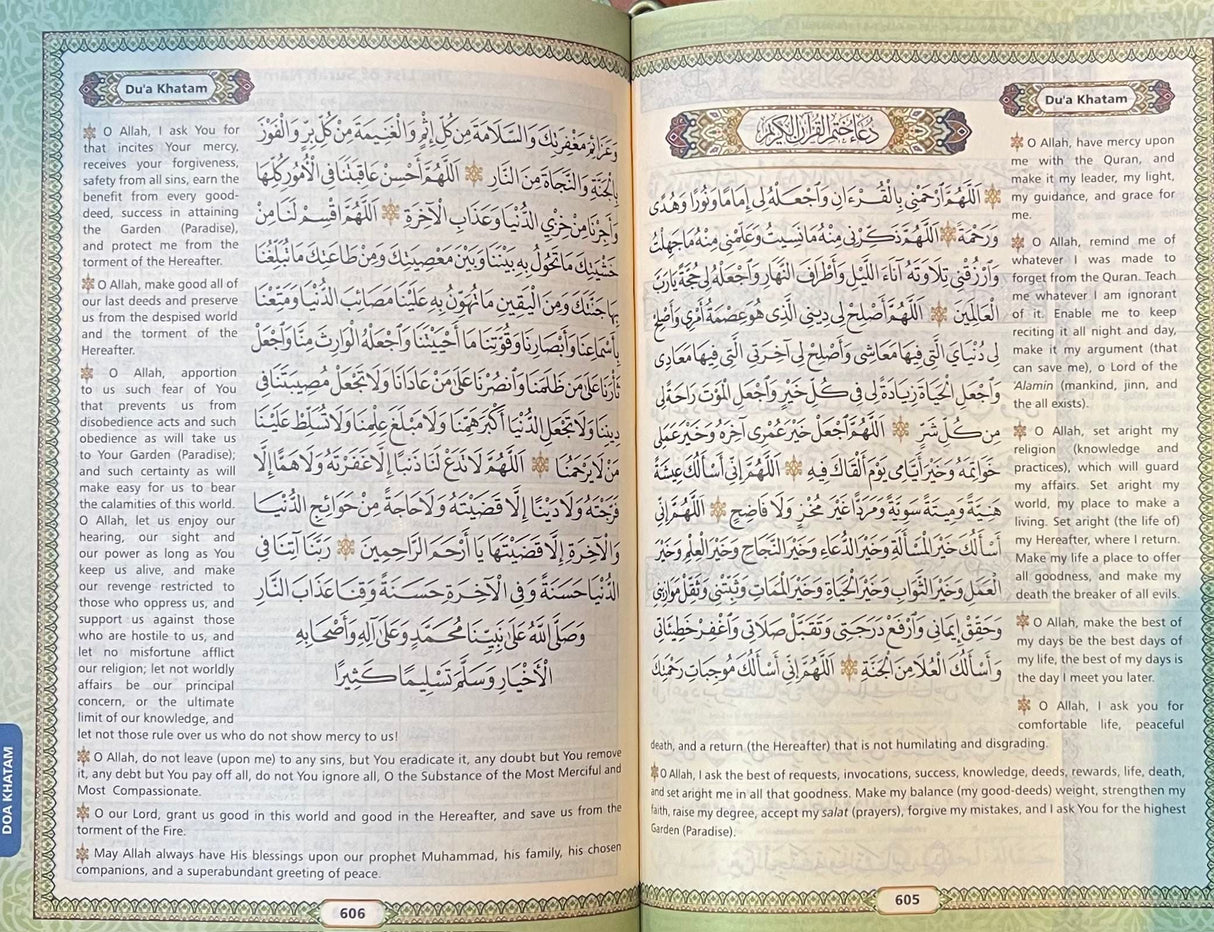 Du'a Khatam
دُعَاءُ خَتْمِ الْقُرْآنِ الْكَرِيْمِ
اَللَّهُمَّ ٱرْحَمْنِي بِالْقُرْءَانِ وَٱجْعَلْهُ لِي إِمَامًا وَنُورًا وَهُدًى
وَرَحْمَةً اَللَّهُمَّ ذَكِّرْنِي مِنْهُ مَا نَسِيتُ وَعَلِّمْنِي مِنْهُ مَا جَهِلْتُ
وَٱرْزُقْنِي تِلَاوَتَهُ آنَاءَ اللَّيْلِ وَأَطْرَافَ النَّهَارِ وَٱجْعَلْهُ لِي حُجَّةً يَارَبَّ
الْعَالَمِينَ اَللَّهُمَّ أَصْلِحْ لِي دِينِي الَّذِي هُوَ عِصْمَةُ أَمْرِي وَأَصْلِحْ
لِي دُنْيَايَ الَّتِي فِيهَا مَعَاشِي وَأَصْلِحْ لِي آخِرَتِي الَّتِي فِيهَا مَعَادِي
وَٱجْعَلِ الْحَيَاةَ زِيَادَةً لِي فِي كُلِّ خَيْرٍ وَٱجْعَلِ الْمَوْتَ رَاحَةً لِي
مِن كُلِّ شَرٍّ اَللَّهُمَّ ٱجْعَلْ خَيْرَ عُمْرِي آخِرَهُ وَخَيْرَ عَمَلِي
خَوَاتِمَهُ وَخَيْرَ أَيَّامِي يَوْمَ أَلْقَاكَ فِيهِ اَللَّهُمَّ إِنِّي أَسْأَلُكَ عِيشَةً
هَنِيَّةً وَمِيتَةً سَوِيَّةً وَمَرَدًّا غَيْرَ مُخْزٍ وَلَا فَاضِحٍ اَللَّهُمَّ إِنِّي
أَسْأَلُكَ خَيْرَ الْمَسْأَلَةِ وَخَيْرَ الدُّعَاءِ وَخَيْرَ النَّجَاحِ وَخَيْرَ الْعِلْمِ وَخَيْرَ
الْعَمَلِ وَخَيْرَ الثَّوَابِ وَخَيْرَ الْحَيَاةِ وَخَيْرَ الْمَمَاتِ وَثَبِّتْنِي وَثَقِّلْ مَوَازِينِي
وَحَقِّقْ إِيمَانِي وَٱرْفَعْ دَرَجَتِي وَتَقَبَّلْ صَلَاتِي وَٱغْفِرْ خَطِيئَاتِي
وَأَسْأَلُكَ الْعُلَا مِنَ الْجَنَّةِ اَللَّهُمَّ إِنِّي أَسْأَلُكَ مُوجِبَاتِ رَحْمَتِكَ
O Allah, have mercy upon
me with the Quran, and
make it my leader, my light,
my guidance, and grace for
me.
O Allah, remind me of
whatever I was made to
forget from the Quran. Teach
me whatever I am ignorant
of it. Enable me to keep
reciting it all night and day,
make it my argument (that
can save me), o Lord of the
'Alamin (mankind, jinn, and
the all exists).
O Allah, set aright my
religion (knowledge and
practices), which will guard
my affairs. Set aright my
world, my place to make a
living. Set aright (the life of)
my Hereafter, where I return.
Make my life a place to offer
all goodness, and make my
death the breaker of all evils.
O Allah, make the best of
my days be the best days of
my life, the best of my days is
the day I meet you later.
O Allah, I ask you for
comfortable life, peaceful
death, and a return (the Hereafter) that is not humilating and disgrading.
O Allah, I ask the best of requests, invocations, success, knowledge, deeds, rewards, life, death,
and set aright me in all that goodness. Make my balance (my good-deeds) weight, strengthen my
faith, raise my degree, accept my salat (prayers), forgive my mistakes, and I ask You for the highest
Garden (Paradise).
605
Du'a Khatam
وَعَزَائِمَ مَغْفِرَتِكَ وَالسَّلَامَةَ مِن كُلِّ إِثْمٍ وَالْغَنِيمَةَ مِنْ كُلِّ بِرٍّ وَالْفَوْزَ
بِالْجَنَّةِ وَالنَّجَاةَ مِنَ النَّارِ اَللَّهُمَّ أَحْسِنْ عَاقِبَتَنَا فِي الْأُمُورِ كُلِّهَا
وَأَجِرْنَا مِنْ خِزْيِ الدُّنْيَا وَعَذَابِ الْآخِرَةِ اَللَّهُمَّ اقْسِمْ لَنَا مِنْ
خَشْيَتِكَ مَا تَحُولُ بِهِ بَيْنَنَا وَبَيْنَ مَعْصِيَتِكَ وَمِنْ طَاعَتِكَ مَا تُبَلِّغُنَا
بِهَا جَنَّتَكَ وَمِنَ الْيَقِينِ مَا تُهَوِّنُ بِهِ عَلَيْنَا مَصَائِبَ الدُّنْيَا وَمَتِّعْنَا
بِأَسْمَاعِنَا وَأَبْصَارِنَا وَقُوَّتِنَا مَا أَحْيَيْتَنَا وَٱجْعَلْهُ الْوَارِثَ مِنَّا وَٱجْعَلْ
ثَأْرَنَا عَلَى مَن ظَلَمَنَا وَانْصُرْنَا عَلَى مَنْ عَادَانَا وَلَا تَجْعَلْ مُصِيبَتَنَا فِي
دِينِنَا وَلَا تَجْعَلِ الدُّنْيَا أَكْبَرَ هَمِّنَا وَلَا مَبْلَغَ عِلْمِنَا وَلَا تُسَلِّطْ عَلَيْنَا
مَنْ لَا يَرْحَمُنَا اَللَّهُمَّ لَا تَدَعْ لَنَا ذَنْبًا إِلَّا غَفَرْتَهُ وَلَا هَمًّا إِلَّا
فَرَّجْتَهُ وَلَا دَيْنًا إِلَّا قَضَيْتَهُ وَلَا حَاجَةً مِنْ حَوَائِجِ الدُّنْيَا
وَالْآخِرَةِ إِلَّا قَضَيْتَهَا يَا أَرْحَمَ الرَّاحِمِينَ رَبَّنَا آتِنَا فِي
الدُّنْيَا حَسَنَةً وَفِي الْآخِرَةِ حَسَنَةً وَقِنَا عَذَابَ النَّارِ
وَصَلَّى اللَّهُ عَلَى نَبِيِّنَا مُحَمَّدٍ وَعَلَى آلِهِ وَأَصْحَابِهِ
الْأَخْيَارِ وَسَلَّمَ تَسْلِيمًا كَثِيرًا
O Allah, I ask You for
that incites Your mercy,
receives your forgiveness,
safety from all sins, earn the
benefit from every good-
deed, success in attaining
the Garden (Paradise),
and protect me from the
torment of the Hereafter.
O Allah, make good all of
our last deeds and preserve
us from the despised world
and the torment of the
Hereafter.
O Allah, apportion
to us such fear of You
that prevents us from
disobedience acts and such
obedience as will take us
to Your Garden (Paradise);
and such certainty as will
make easy for us to bear
the calamities of this world.
O Allah, let us enjoy our
hearing, our sight and
our power as long as You
keep us alive, and make
our revenge restricted to
those who oppress us, and
support us against those
who are hostile to us, and
let no misfortune afflict
our religion; let not worldly
affairs be our principal
concern, or the ultimate
limit of our knowledge, and
let not those rule over us who do not show mercy to us!
O Allah, do not leave (upon me) to any sins, but You eradicate it, any doubt but You remove
it, any debt but You pay off all, do not You ignore all, O the Substance of the Most Merciful and
Most Compassionate.
O our Lord, grant us good in this world and good in the Hereafter, and save us from the
torment of the Fire.
May Allah always have His blessings upon our prophet Muhammad, his family, his chosen
companions, and a superabundant greeting of peace.
606
DOA KHATAM